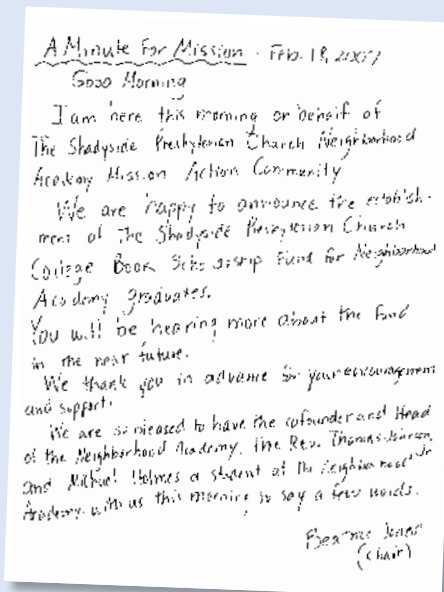 A Minute For Mission - Feb. 18, 2007
Good Morning
I am here this morning on behalf of
The Shadyside Presbyterian Church Neighborhood
Academy Mission Action Community
We are happy to announce the establish-
ment of The Shadyside Presbyterian Church
College Book Scholarship Fund for Neighborhood
Academy graduates.
You will be hearing more about the fund
in the near future.
We thank you in advance for your encouragement
and support.
We are so pleased to have the cofounder and Head
of the Neighborhood Academy, The Rev. Thomas Johnson, Jr
and Holmes a student at the Neighborhood
Academy with us this morning to say a few words.
Jones
(Chair)